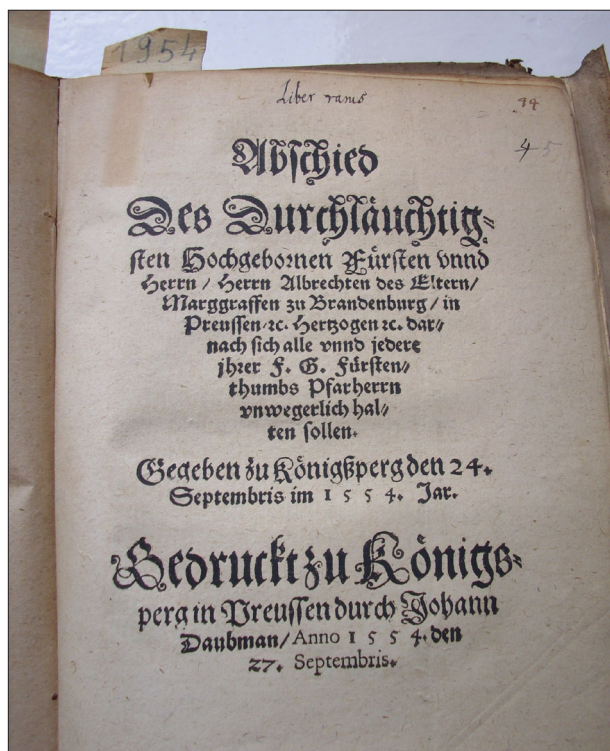 1954
Liber rarus
44
45
Abschied
Des Durchläuchtig⸗
sten Hochgebornen Fürsten vnnd
Herrn / Herrn Albrechten des Eltern/
Marggraffen zu Brandenburg / in
Preussen ꝛc. Hertzogen ꝛc. dar⸗
nach sich alle vnnd jedere
jhrer F. G. Fürsten⸗
thumbs Pfarherrn
vnwegerlich hal⸗
ten sollen.
Gegeben zu Königßperg den 24.
Septembris im 1554. Jar.
Gedruckt zu Königs⸗
perg in Preussen durch Johann
Daubman/ Anno 1554. den
27. Septembris.